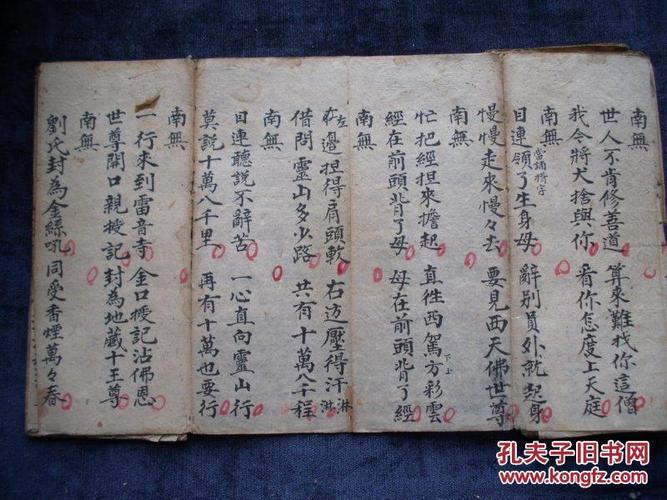 南無
世人不肯修善道 算來難找你這僧
我今將犬捨與你 看你怎度上天庭
南無
當誦揹字
目連領了生身母 辭別員外就起身
慢慢走來慢々去 要見西天佛世尊
南無
忙把經担來擔起 直徃西駕方彩雲
下上
經在前頭背了母 母在前頭背了經
南無
左在邊担得肩頭軟 右边壓得汗淋淋
借問靈山多少路 共有十萬八千程
南無
目連聽說不辭苦 一心直向靈山行
莫說十萬八千里 再有十萬也要行
南無
一行來到雷音寺 金口授記沾佛恩
世尊開口親授記 封為地藏十王尊
南無
劉氏封為金絲吼 同受香煙萬々春
孔夫子旧书网
www.kongfz.com